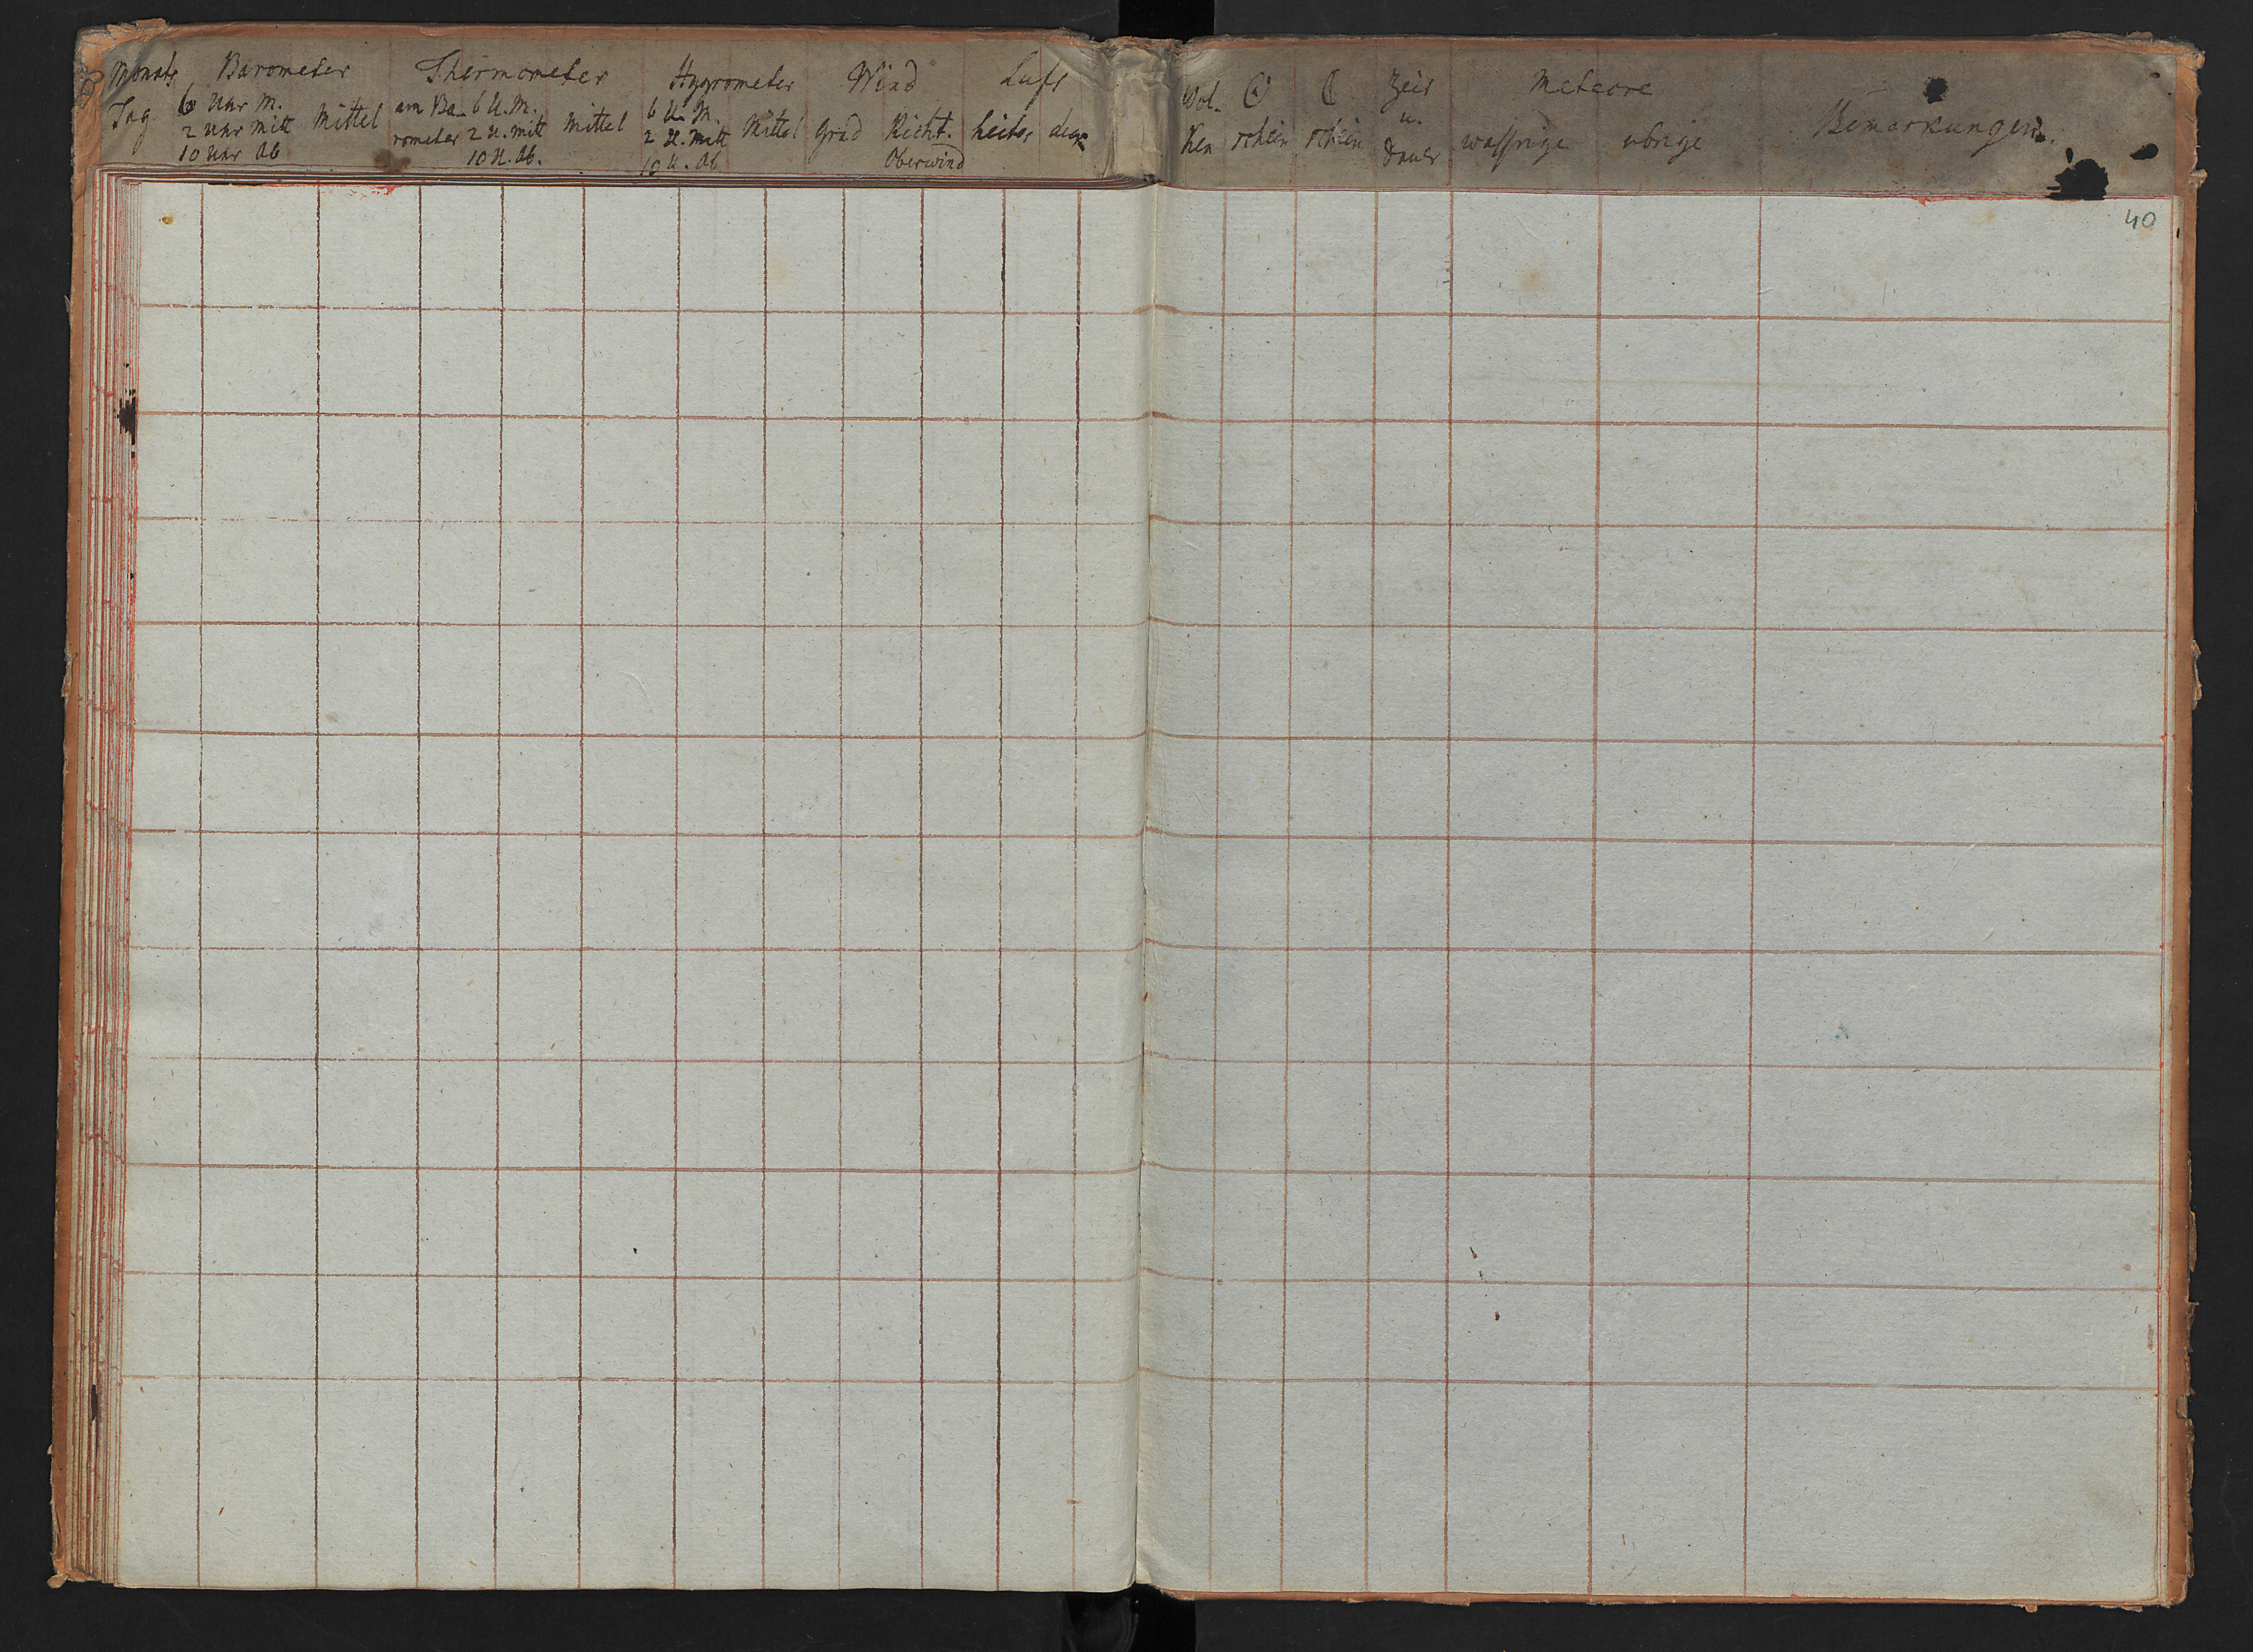 Monats Barometer Thermometer Hygrometer Wind Luft
Tag 6 Uhr M. Mittel am Ba- 6 U. M. Mittel 6 U. M. Mittel Grad Richt. heiter
2 Uhr Mitt rometer 2 U. Mitt 2 U. Mitt
10 Uhr Ab 10 U. Ab. 10 U. Ab Oberwind
Wol- ☉ ☾ Zeit Meteore
ken schein schein u. wassrige ubrige Bemerkungen.
Dauer
40